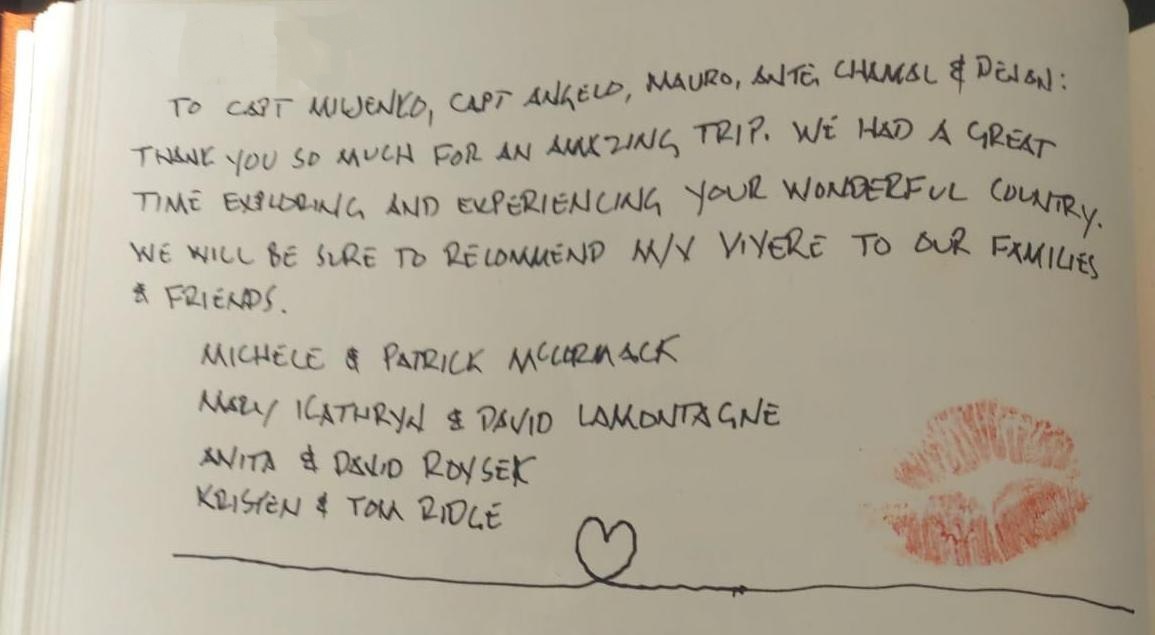 TO CAPT MILJENKO, CAPT ANGELO, MAURO, ANTE, CHAMAL & DEJAN:
THANK YOU SO MUCH FOR AN AMAZING TRIP. WE HAD A GREAT
TIME EXPLORING AND EXPERIENCING YOUR WONDERFUL COUNTRY.
WE WILL BE SURE TO RECOMMEND M/Y VIVERE TO OUR FAMILIES
& FRIENDS.
MICHELE & PATRICK MCCORMACK
MARY KATHRYN & DAVID LAMONTAGNE
ANITA & DAVID ROYSEK
KRISTEN & TOM RIDGE